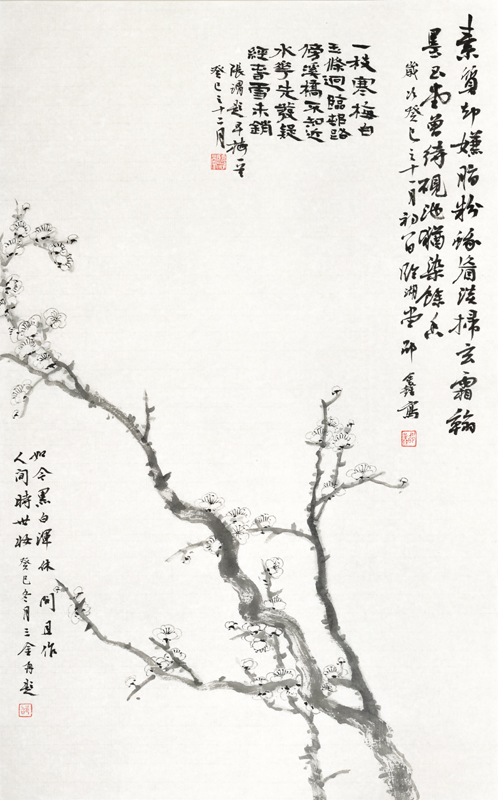 素質却嫌脂粉蛾眉淡掃玄霜翰
墨曾待硯池猶染餘香
歲次癸巳之十一月初臨湖堂鑫寫
一枝寒梅白
玉條迥臨邨路
傍溪橋不知近
水華先發疑
經春雪未銷
張謂題早梅一首
癸巳之十二月
如今黑白渾休問且作
人間時世妝癸巳冬月三金再題